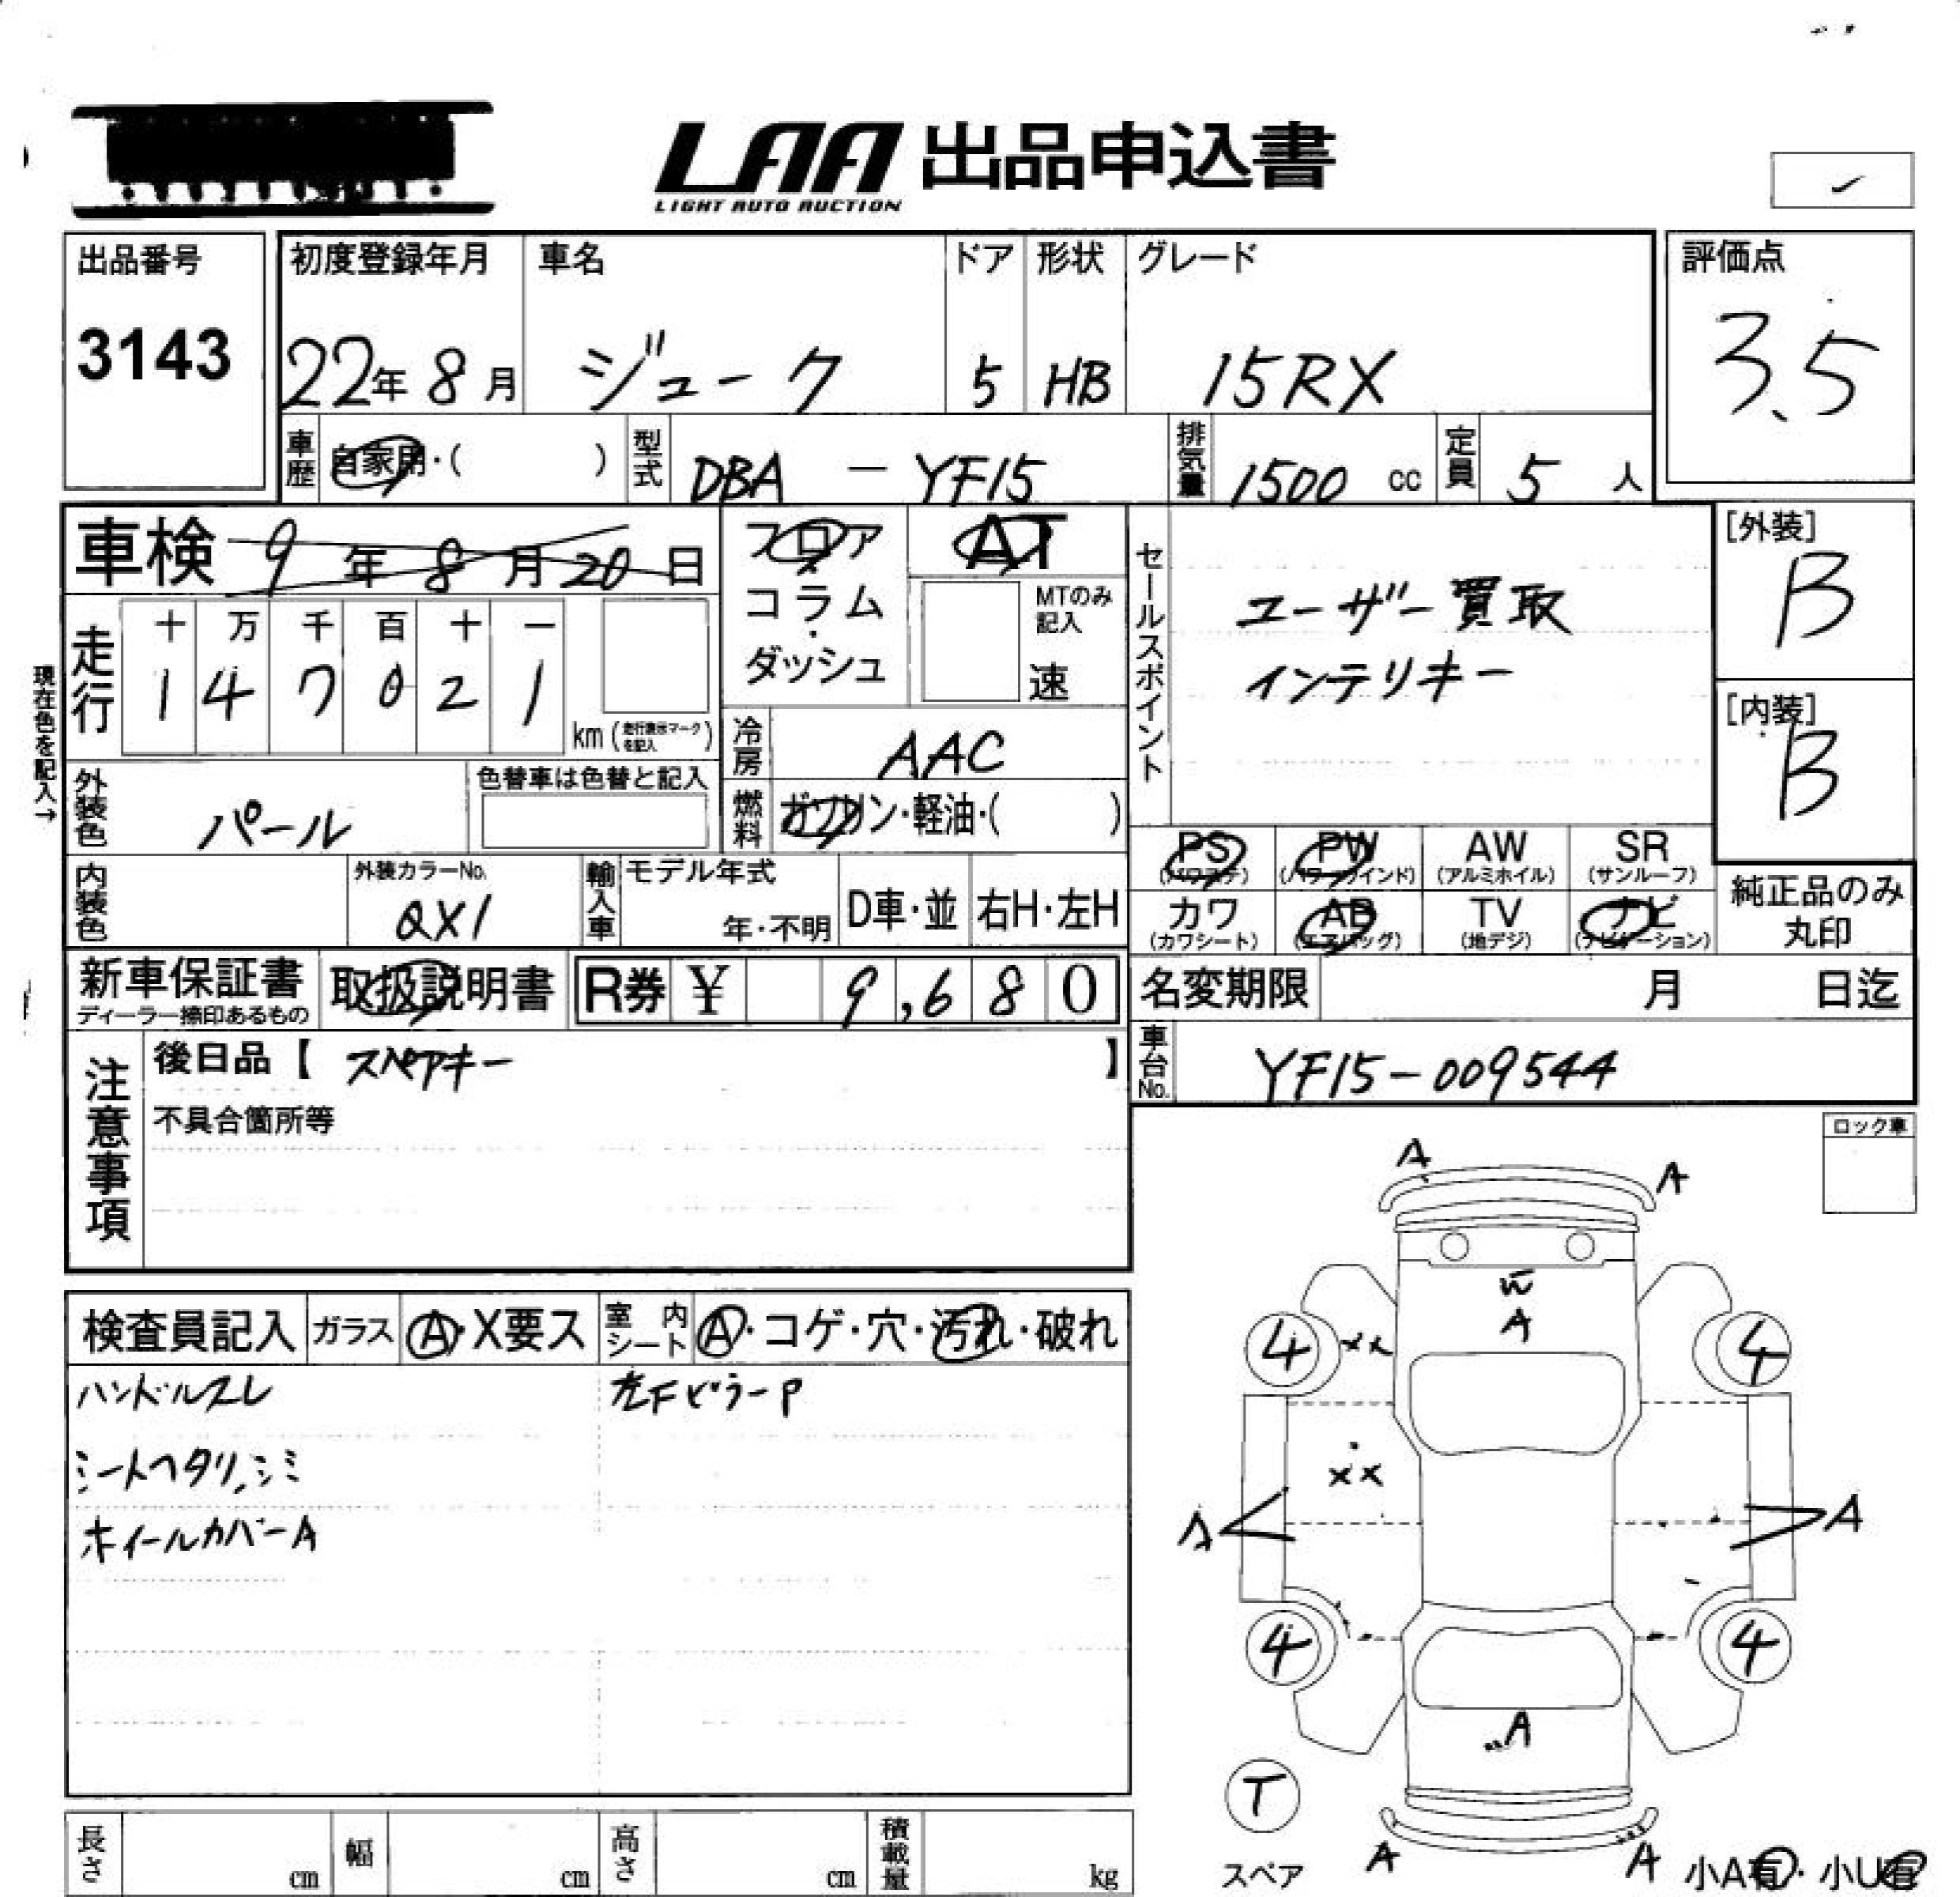 LAA 出品申込書
LIGHT AUTO AUCTION
出品番号
3143
初度登録年月
22年 8月
車名
ジューク
ドア
5
形状
HB
グレード
15RX
評価点
3.5
車歴 自家用・( )
型式 DBA - YF15
排気量 1500 cc
定員 5 人
車検 9年 8月 20日
フロア・コラム・ダッシュ
AT
MTのみ記入
速
セールスポイント
ユーザー買取
インテリキー
[外装]
B
[内装]
B
現在色を記入→
走行
十 万 千 百 十 一
1 4 7 0 2 1
km (走行表示マークを記入)
冷房 AAC
燃料 ガソリン・軽油・( )
外装色 パール
色替車は色替と記入
内装色
外装カラーNo.
QX1
輸入車 モデル年式
年・不明
D車・並
右H・左H
PS (パワステ)
PW (パワーウインド)
AW (アルミホイル)
SR (サンルーフ)
カワ (カワシート)
AB (エアバッグ)
TV (地デジ)
ナビ (ナビゲーション)
純正品のみ丸印
新車保証書
ディーラー捺印あるもの
取扱説明書
R券 ¥ 9,680
名変期限 月 日迄
注意事項
後日品【 スペアキー 】
不具合箇所等
車台No. YF15-009544
ロック車
検査員記入
ガラス A・X要ス
室内シート A・コゲ・穴・汚れ・破れ
ハンドルスレ
左FピラーP
シートヘタリ、シミ
ホイールカバーA
A A
A
4 XX 4
XX
A A
4 4
A
T
スペア
A A
小A有・小U有
長さ cm
幅 cm
高さ cm
積載量 kg